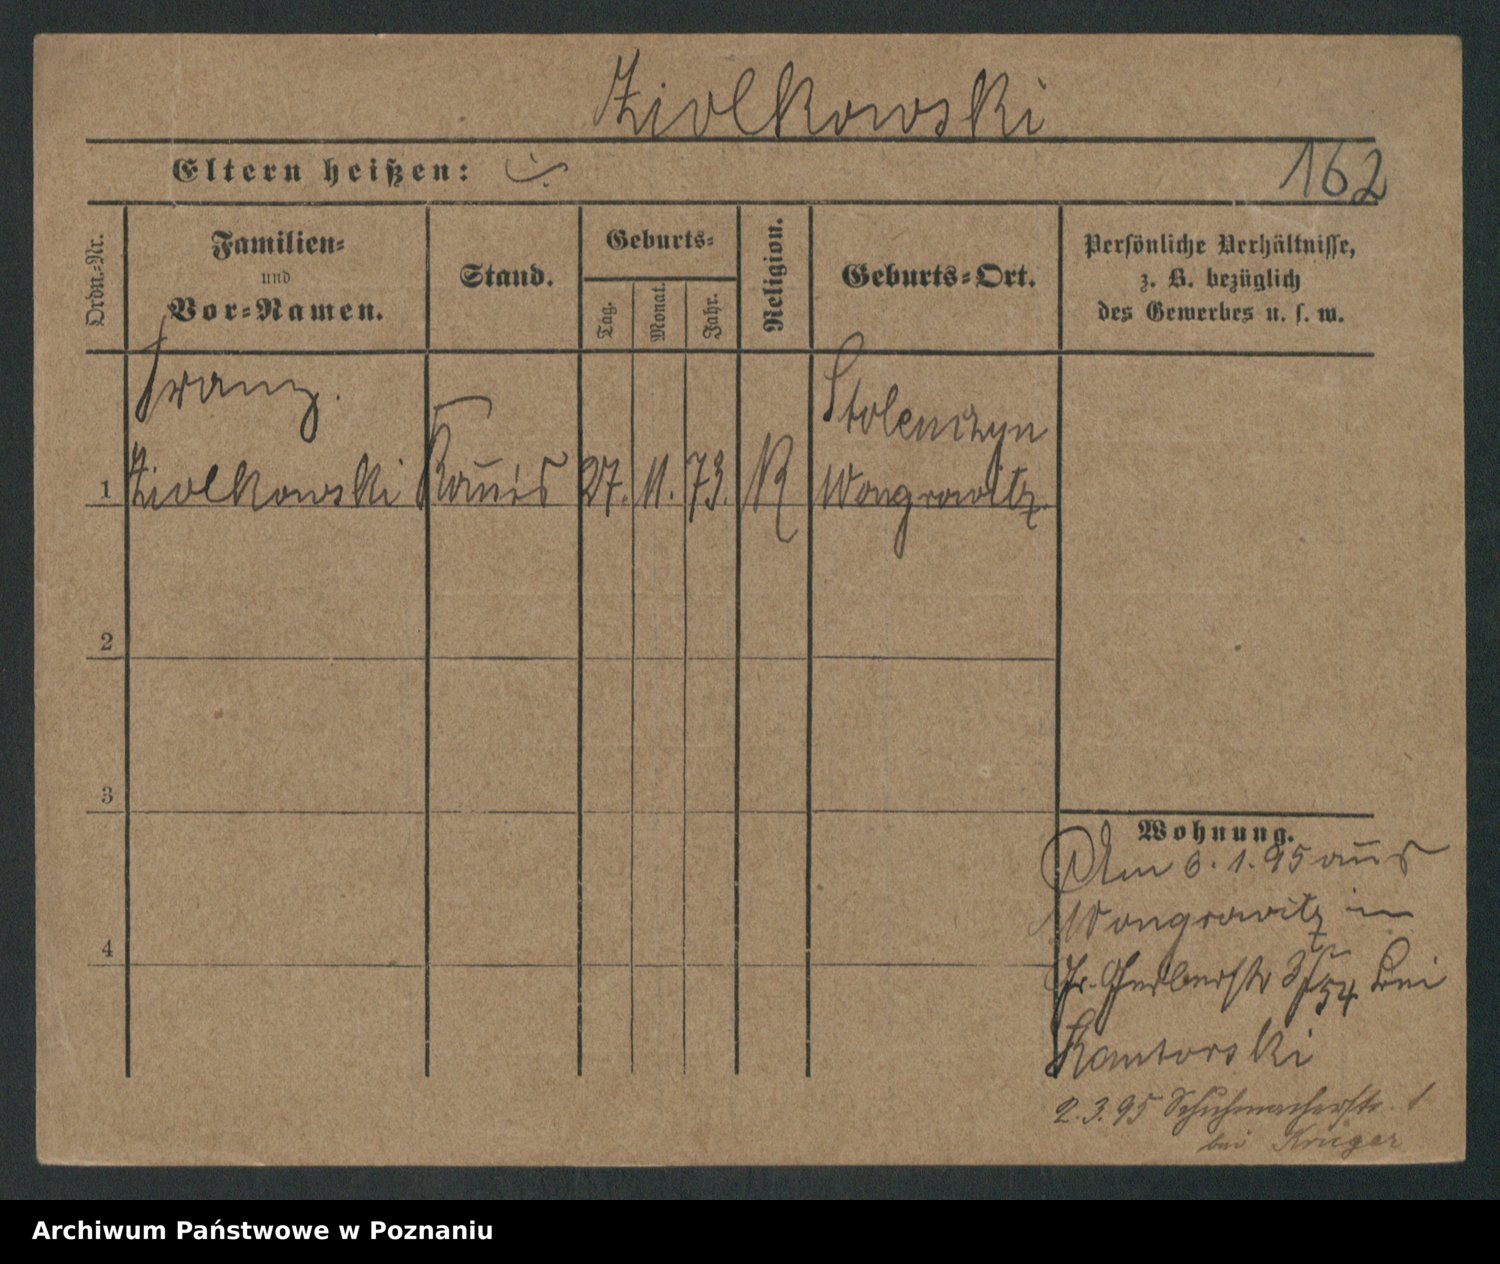 Ziolkowski
Eltern heißen:
162
Ordn.-Nr.
Familien-
und
Vor-Namen.
Stand.
Geburts-
Tag.
Monat.
Jahr.
Religion.
Geburts-Ort.
Persönliche Verhältnisse,
z. B. bezüglich
des Gewerbes u. s. w.
Franz.
Stolenczyn
1 Ziolkowski 27. 11. 73. K Wongrowitz
2
3
4
Wohnung.
Am 3. 1. 95 aus
Wongrowitz in
Gr. Gerberstr 54 bei
Kantorski
2. 3. 95 Schuhmacherstr. 1
bei Krüger
Archiwum Państwowe w Poznaniu